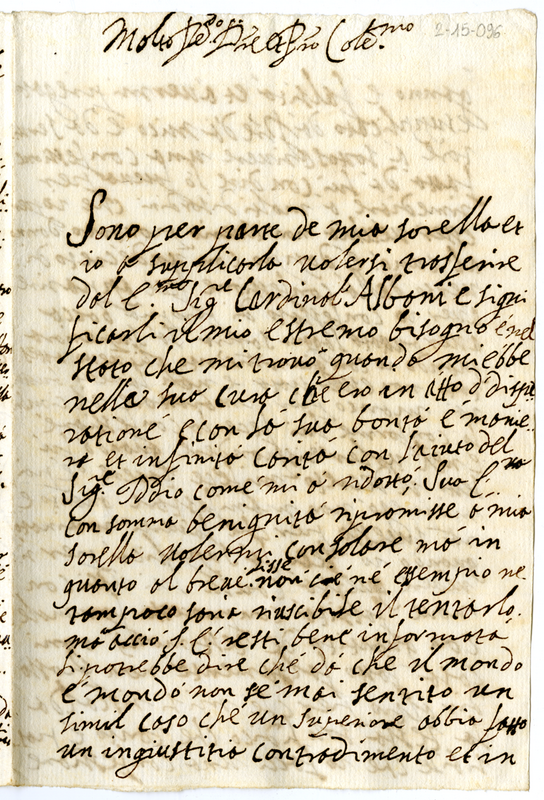 Molto Re.do Pre et Pro Cole.mo
2-15-096
Sono per parte de mia sorella et
io a supplicarla volersi trosferire
dal E.mo Sig.e Cardinal Alboni e signi
ficarli il mio estremo bisogno é nel
stato che mi trovó quando mi ebbe
nella sua cura che ero in atto d dispe
ratione é con la sua bontá é manie
ra et infinita caritá con l aiuto del
Sig.e Iddio come mi á ridotto. Sua E.za
con somma benignitá ripromisse á mia
sorella volermi consolare má in
quanto al breve disse non c é né essempio ne
tampoco saria riuscibile il tentarlo.
má acció S. E. resti bene informata
si potrebbe dire ché dá che il mondo
é mondó non sé mai sentito un
simil caso ché un superiore abbia fatto
un ingiustitia contradimento et in